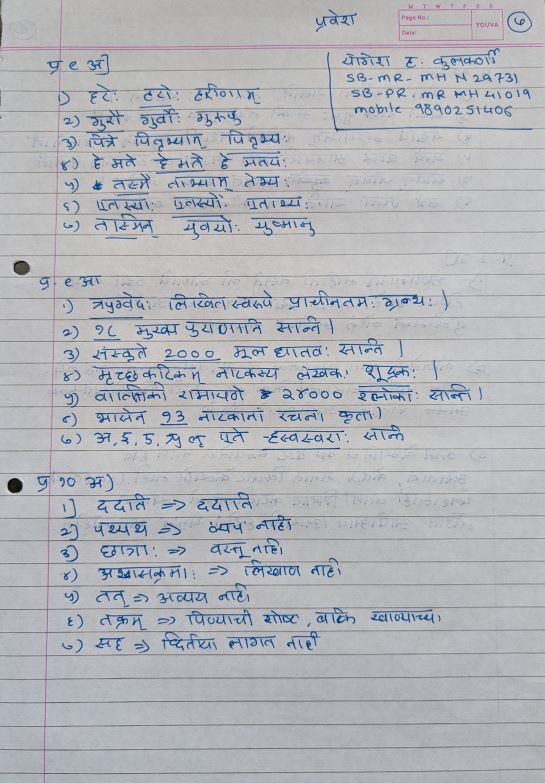 M T W T F S S
Page No.:
Date:
YOUVA
७
प्रवेश
योगेश ह. कुलकर्णी
SB-MR-MH N 29731
SB-PR. MR MH 41019
mobile 9890251406
प्र ९ अ]
१) हरेः हर्योः हरीणाम्
२) गुरौ गुर्वोः गुरुषु
३) पित्रे पितृभ्याम् पितृभ्यः
४) हे मते हे मती हे मतयः
५) तस्मै ताभ्याम् तेभ्यः
६) एतस्याः एतस्योः एताभ्यः
७) तस्मिन् युवयोः युष्मासु
प्र. ९ आ
१) ऋग्वेदः लिखितस्वरूपे प्राचीनतमः ग्रन्थः।
२) १८ मुख्य पुराणानि सन्ति।
३) संस्कृते 2000 मूल धातवः सन्ति।
४) मृच्छकटिकम् नाटकस्य लेखकः शूद्रकः।
५) वाल्मिकी रामायणे २४००० श्लोकाः सन्ती।
६) भासेन १३ नाटकानां रचना कृता।
७) अ, इ, उ, ऋ लृ एते -हस्वस्वराः सन्ति
प्र १० अ)
१] ददाति => ददाति
२] पथ्यथ => नाही।
३) छात्राः => वस्तू नाही।
४) => लिखाण नाही।
५) तत् => अव्यय नाही।
६) तक्रम् => पिण्याची गोष्ट, बाकि खाण्याच्या
७) सह => द्वितीया लागत नाही